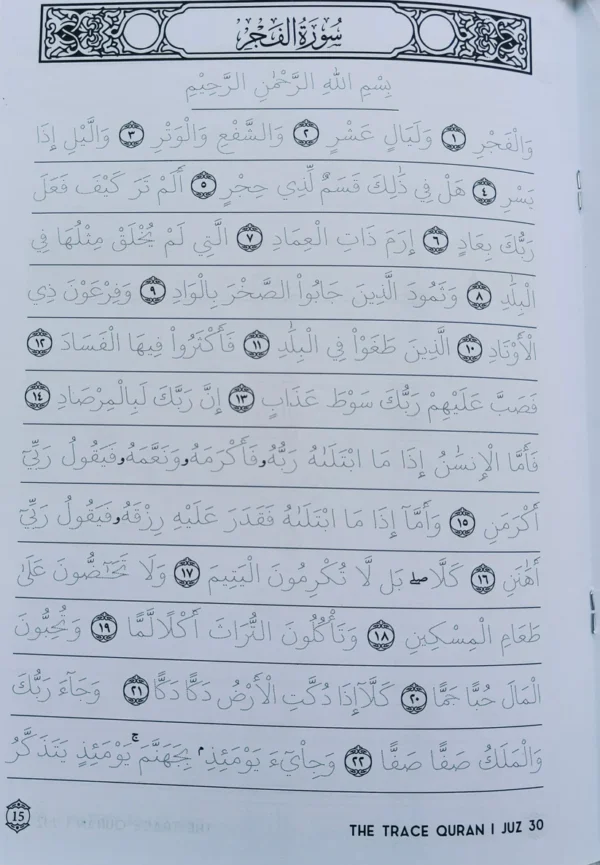 سُورَةُ الْفَجْرِ
بِسْمِ اللهِ الرَّحْمٰنِ الرَّحِيْمِ
وَالْفَجْرِ ١ وَلَيَالٍ عَشْرٍ ٢ وَالشَّفْعِ وَالْوَتْرِ ٣ وَالَّيْلِ إِذَا
يَسْرِ ٤ هَلْ فِي ذَٰلِكَ قَسَمٌ لِّذِي حِجْرٍ ٥ أَلَمْ تَرَ كَيْفَ فَعَلَ
رَبُّكَ بِعَادٍ ٦ إِرَمَ ذَاتِ الْعِمَادِ ٧ الَّتِي لَمْ يُخْلَقْ مِثْلُهَا فِي
الْبِلَٰدِ ٨ وَثَمُودَ الَّذِينَ جَابُواْ الصَّخْرَ بِالْوَادِ ٩ وَفِرْعَوْنَ ذِي
الْأَوْتَادِ ١٠ الَّذِينَ طَغَوْاْ فِي الْبِلَٰدِ ١١ فَأَكْثَرُواْ فِيهَا الْفَسَادَ ١٢
فَصَبَّ عَلَيْهِمْ رَبُّكَ سَوْطَ عَذَابٍ ١٣ إِنَّ رَبَّكَ لَبِالْمِرْصَادِ ١٤
فَأَمَّا الْإِنسَٰنُ إِذَا مَا ابْتَلَىٰهُ رَبُّهُۥ فَأَكْرَمَهُۥ وَنَعَّمَهُۥ فَيَقُولُ رَبِّيٓ
أَكْرَمَنِ ١٥ وَأَمَّآ إِذَا مَا ابْتَلَىٰهُ فَقَدَرَ عَلَيْهِ رِزْقَهُۥ فَيَقُولُ رَبِّيٓ
أَهَٰنَنِ ١٦ كَلَّا ۖ بَل لَّا تُكْرِمُونَ الْيَتِيمَ ١٧ وَلَا تَحَٰٓضُّونَ عَلَىٰ
طَعَامِ الْمِسْكِينِ ١٨ وَتَأْكُلُونَ التُّرَاثَ أَكْلًا لَّمًّا ١٩ وَتُحِبُّونَ
الْمَالَ حُبًّا جَمًّا ٢٠ كَلَّآ إِذَا دُكَّتِ الْأَرْضُ دَكًّا دَكًّا ٢١ وَجَآءَ رَبُّكَ
وَالْمَلَكُ صَفًّا صَفًّا ٢٢ وَجِاْيٓءَ يَوْمَئِذٍۭ بِجَهَنَّمَ ۚ يَوْمَئِذٍ يَتَذَكَّرُ
15 THE TRACE QURAN | JUZ 30